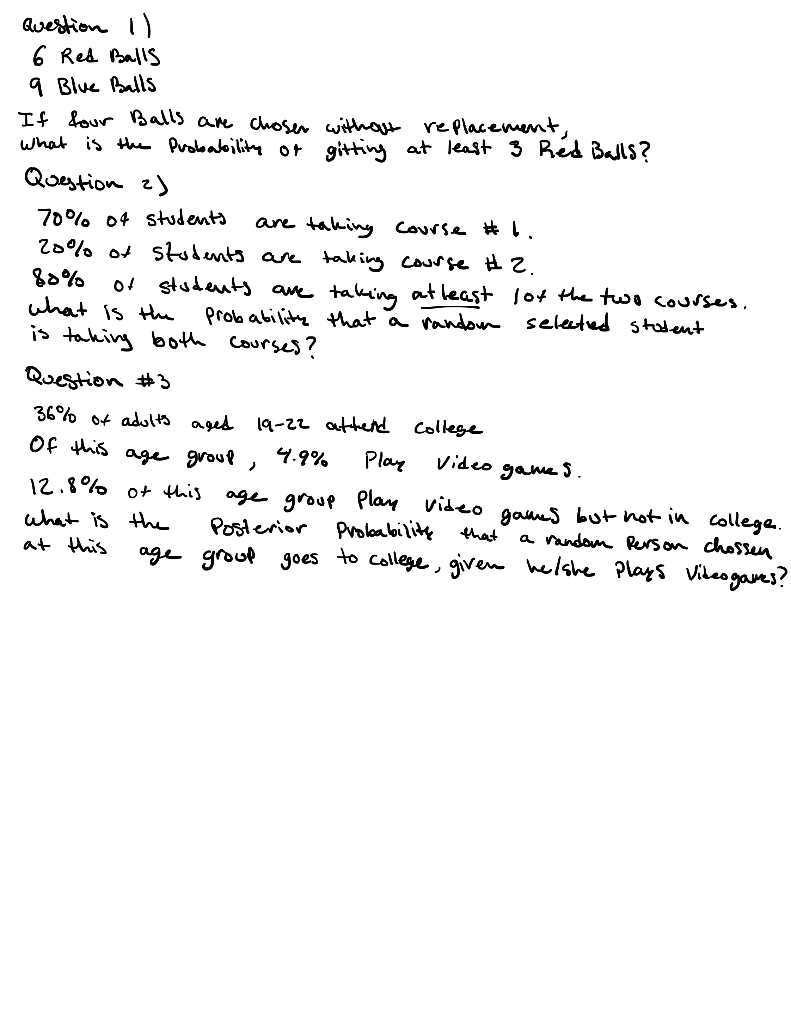 Question 1)
6 Red Balls
9 Blue Balls
If four Balls are chosen without replacement,
what is the Probability of gitting at least 3 Red Balls?
Question 2)
70% of students are taking course # 1.
20% of students are taking course # 2.
80% of students are taking at least 1 of the two courses.
what is the Probability that a random selected student
is taking both courses?
Question #3
36% of adults aged 19-22 attend college
Of this age group, 4.9% Play Video games.
12.8% of this age group Play video games but not in college.
what is the Posterior Probability that a random Person chossen
at this age group goes to college, given he/she Plays Videogames?